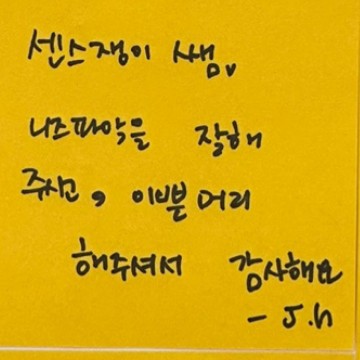 센스쟁이 쌤,
니즈파악을 잘해
주시고, 이쁜머리
해주셔서 감사해요
- J.h